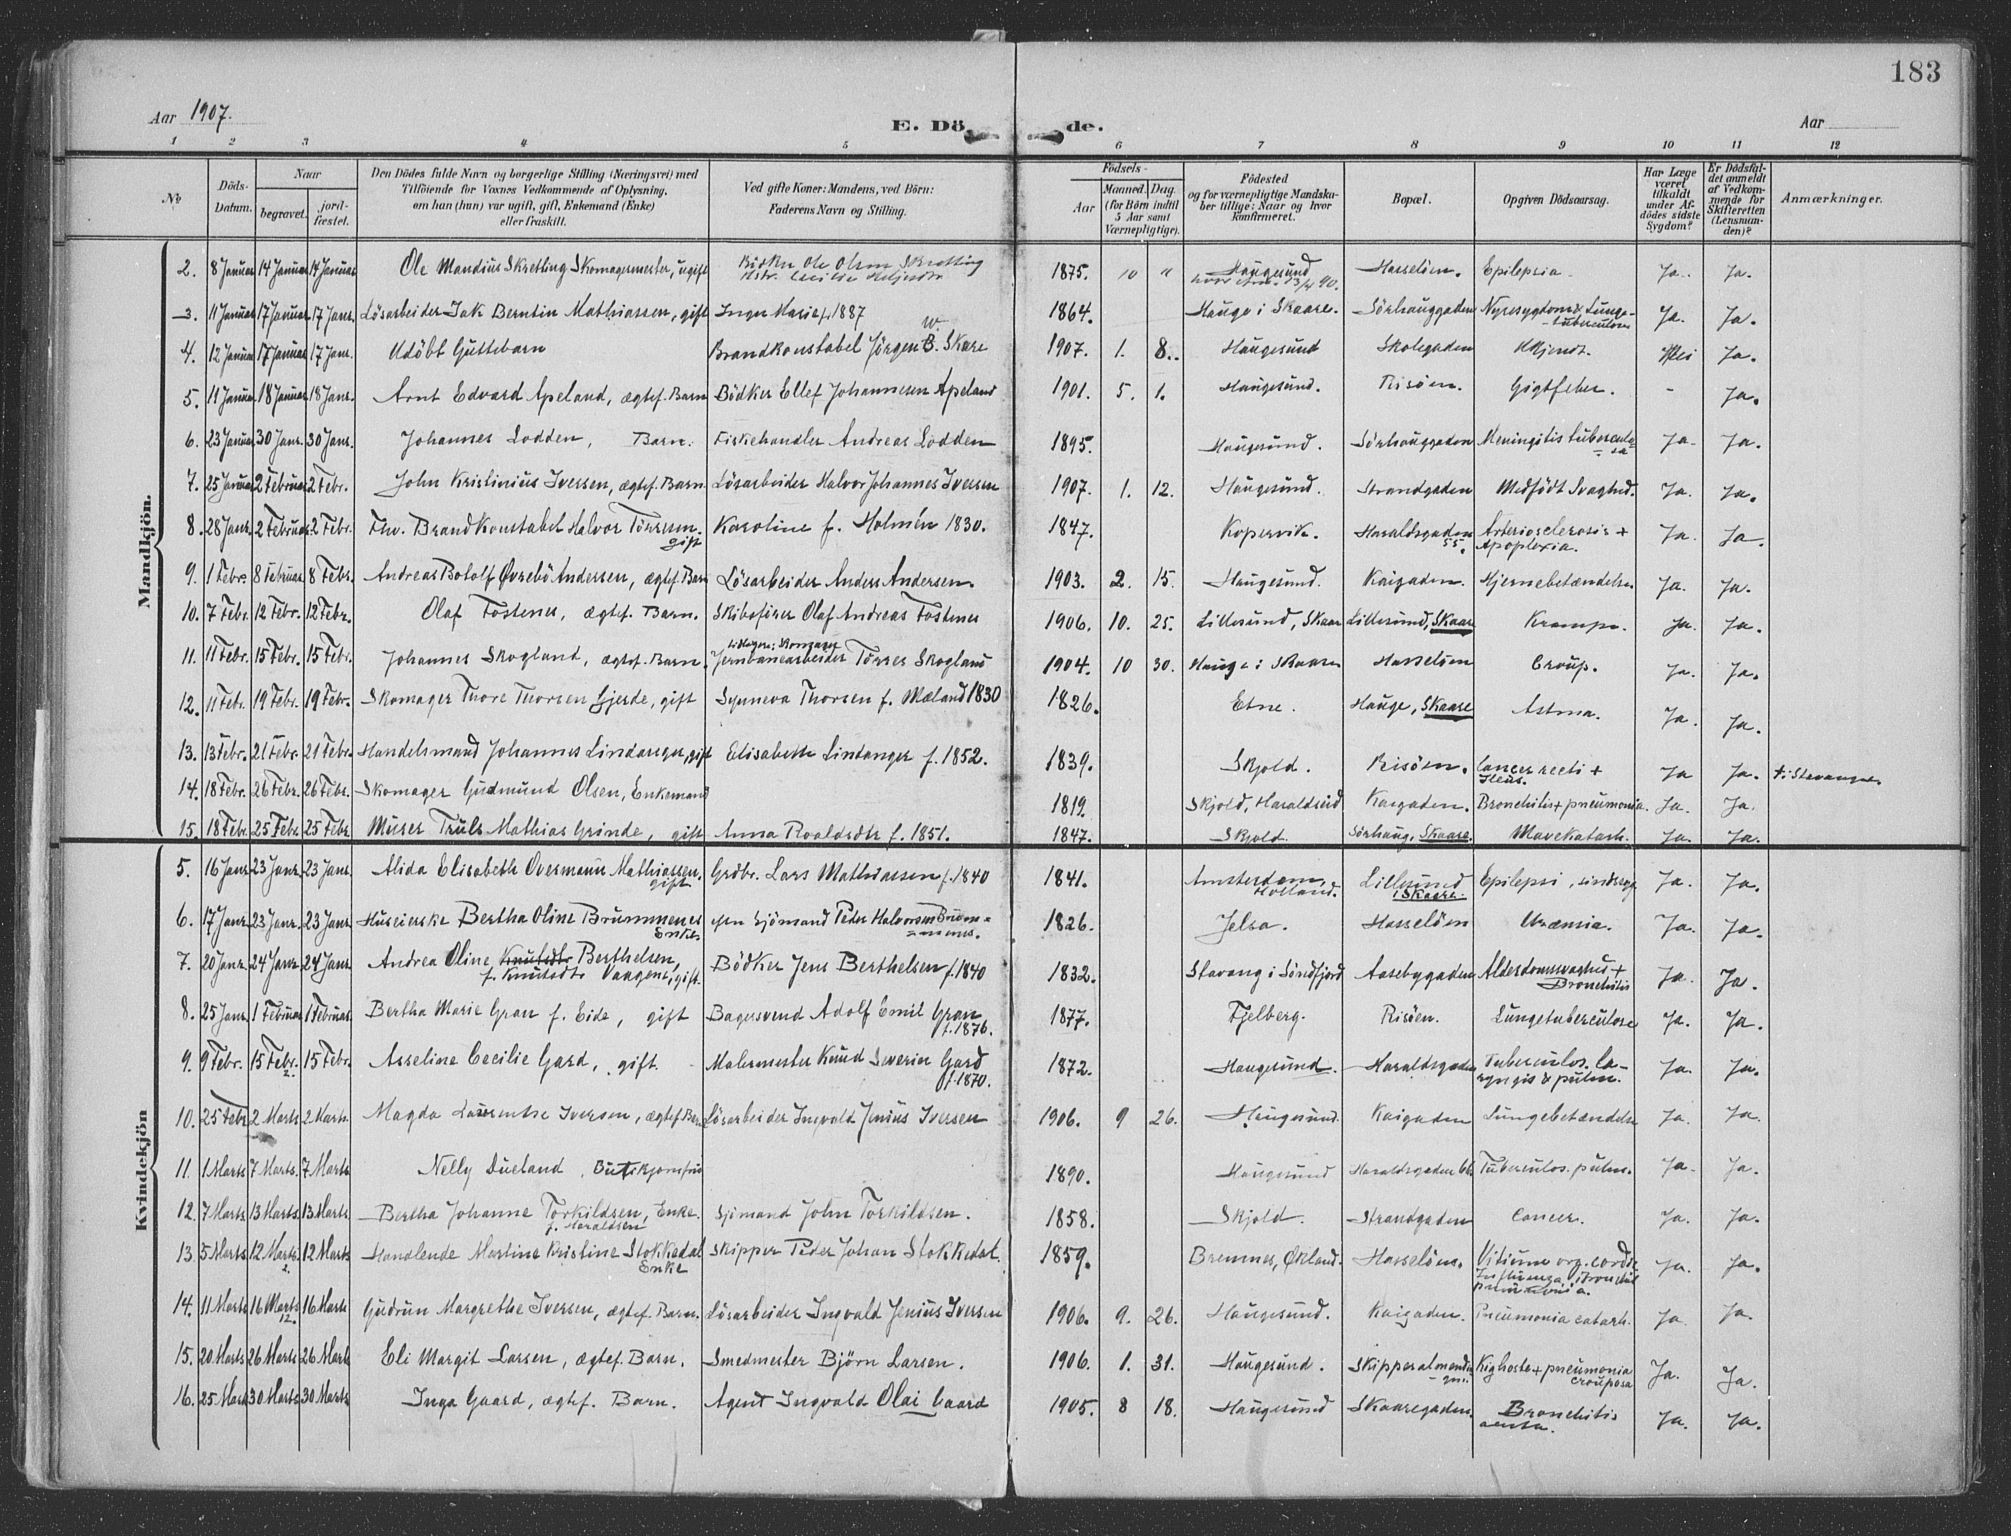 183
Aar 1907.
E. Dö de.
Aar
1 2 3 4 5 6 7 8 9 10 11 12
No
Döds-Datum.
Naar
begravet.
jord-fæstet.
Den Dödes fulde Navn og borgerlige Stilling (Næringsvei) med
Tilföiende for Voxnes Vedkommende af Oplysning,
om han (hun) var ugift, gift, Enkemand (Enke)
eller fraskilt.
Ved gifte Koner: Mandens, ved Börn:
Faderens Navn og Stilling.
Födsels-
Aar
Maaned. Dag.
(for Börn indtil
5 Aar samt
Værnepligtige).
Födested
og for værnepligtige Mandska-
ber tillige: Naar og hvor
konfirmeret.
Bopæl.
Opgiven Dödsaarsag.
Har Læge
været
tilkaldt
under Af-
dödes sidste
Sygdom?
Er Dödsfal-
det anmeldt
af Vedkom-
mende for
Skifteretten
(Lensman-
den)?
Anmærkninger.
Mandkjön.
2. 8 Januar 14 Januar 14 Januar Ole Mandius Skretting Skomagermester, ugift Bödker Ole Olsen Skretting 1875. 10 " Haugesund Hasseløen. Epilepsia Ja. Ja.
3. 11 Januar 17 Januar 17 Janr. Løsarbeider Jak Berntin Mathiassen, gift Inger Marie f. 1887 1864. Hauge i Skaare. Sörhauggaden Nyresygdom & Lunge-tuberculose Ja. Ja.
4. 12 Januar 17 Januar 17 Janr. Udöbt Guttebarn Brandkonstabel Jørgen W. B. Skare 1907. 1. 8. Haugesund Skolegaden Ukjendt. Nei Ja.
5. 11 Januar 18 Januar 18 Janr. Arnt Edvard Apeland, ægtef. Barn Bödker Ellef Johannesen Apeland 1901. 5. 1. Haugesund. Risöen. Gigtfeber. - Ja.
6. 23 Januar 30 Janr. 30 Janr. Johannes Lodden, Barn. Fiskehandler Andreas Lodden 1895. Haugesund. Sörhauggaden Meningitis tuberculo-sa Ja. Ja.
7. 25 Januar 2 Februar 2 Febr. John Kristinius Iversen, ægtef. Barn Løsarbeider Halvor Johannes Iversen 1907. 1. 12. Haugesund. Strandgaden Medfödt Svaghed. Ja. Ja.
8. 28 Janr. 2 Februar 2 Febr. Fhv. Brandkonstabel Halvor Törresen. gift Karoline f. Holmén 1830. 1847. Kopervik. Haraldsgaden 55. Arteriosclerosis + Apoplexia. Ja. Ja.
9. 1 Febr. 8 Februar 8 Febr. Andreas Botolf Øvrebö Andersen, ægtef. Barn Løsarbeider Anders Andersen. 1903. 2. 15. Haugesund. Kaigaden. Hjernebetændelse. Ja. Ja.
10. 7 Febr. 12 Febr. 12 Febr. Olaf Tostenes, ægtef. Barn. Skibsfører Olaf Andreas Tostenes 1906. 10. 25. Lillesund, Skaar Lillesund, Skaar Krampe. Ja. Ja.
11. 11 Febr. 15 Febr. 15 Febr. Johannes Skogland, ægtef. Barn. Jernbanearbeider Törres Skogland 1904. 10 30. Hauge i Skaare Hasseløen Croup. Ja. Ja.
12. 11 Febr. 19 Febr. 19 Febr. Skomager Thore Thorsen Gjerde, gift Synneva Thorsen f. Mæland 1830 1826. Etne. Hauge, Skaare Astma. Ja. Ja.
13. 13 Febr. 21 Febr. 21 Febr. Handelsmand Johannes Lindanger, gift Elisabeth Lindanger f. 1852. 1839. Skjold. Risöen. Cancer recti + Ileus. Ja Ja. † i Stavanger.
14. 18 Febr. 26 Febr. 26 Febr. Skomager Gudmund Olsen, Enkemand 1819. Skjold, Haraldseid Kaigaden. Bronchitis + pneumonia. Ja. Ja.
15. 18 Febr. 25 Febr. 25 Febr. Murer Truls Mathias Grinde, gift Anna Roaldsdtr f. 1851. 1847. Skjold. Sörhaug, Skaare. Mavekatarh. Ja. Ja.
Kvindekjön
5. 16 Janr. 23 Janr. 23 Janr. Alida Elisabeth Overmann Mathiassen, gift Grdbr. Lars Mathiassen f. 1840 1841. Amsterdam, Holland. Lillesund i Skaare. Epilepsi, sindssyg Ja. Ja.
6. 17 Janr. 23 Janr. 23 Janr. Huseierske Bertha Oline Brummenes Enke Sjömand Peder Halvorsen Brum-menes. 1826. Jelsa. Hasseløen Uræmia. Ja. Ja.
7. 20 Janr. 24 Janr. 24 Janr. Andrea Oline Knutsdtr Berthelsen, f. Knutsdtr Vaagene, gift. Bödker Jens Berthelsen f. 1840 1832. Stavang i Söndfjord Aasebygaden Alderdomssvaghed + Bronchitis Ja. Ja.
8. 25 Janr. 1 Februar 1 Februar. Bertha Marie Gran f. Eide, gift Bagersvend Adolf Emil Gran f. 1876. 1877. Fjelberg. Risöen. Lungetuberculose Ja. Ja.
9. 9 Febr. 15 Febr. 15 Febr. Asseline Cecilie Gard, gift. Malermester Knud Severin Gard f. 1870. 1872. Haugesund. Haraldsgaden Tuberculos. la-ryngis & pulm. Ja. Ja.
10. 25 Febr 2 Marts. 2 Marts. Magda Laurentse Iversen, ægtef. Barn Løsarbeider Ingvald Jenius Iversen 1906. 9 26. Haugesund. Kaigaden Lungebetændelse Ja. Ja.
11. 1 Marts 7 Marts. 7 Marts Nelly Dueland, Butikjomfru 1890. Haugesund Haraldsgaden 66. Tuberculos. pulm. Ja. Ja.
12. 7 Marts. 13 Marts. 13 Marts. Bertha Johanne Torkildsen, Enke. f. Haraldsen Sjömand John Torkildsen. 1858. Skjold. Strandgaden Cancer. Ja. Ja.
13. 5 Marts 12 Marts. 12 Marts Handlende Martine Kristine Stokkedal Enke Skipper Peder Johan Stokkedal. 1859. Bremnes, Økland. Hasseløen. Vitium org. cordis Influenza, Bronchit pneumonia. Ja. Ja.
14. 11 Marts 16 Marts 16 Marts Gudrun Margrethe Iversen, ægtef. Barn. Løsarbeider Ingvald Jenius Iversen 1906. 9. 26. Haugesund. Kaigaden. Pneumonia catarh. Ja. Ja.
15. 20 Marts 26 Marts 26 Marts Eli Margit Larsen, ægtef. Barn. Smedmester Björn Larsen. 1906. 1. 31. Haugesund. Skipperalmenin-gen. Kighoste + pneumonia crouposa Ja. Ja.
16. 25 Marts 30 Marts 30 Marts Inga Gaard, ægtef. Barn. Agent Ingvald Olai Gaard 1905. 8 18. Haugesund Skaaregaden. Bronchitis acuta. Ja. Ja.